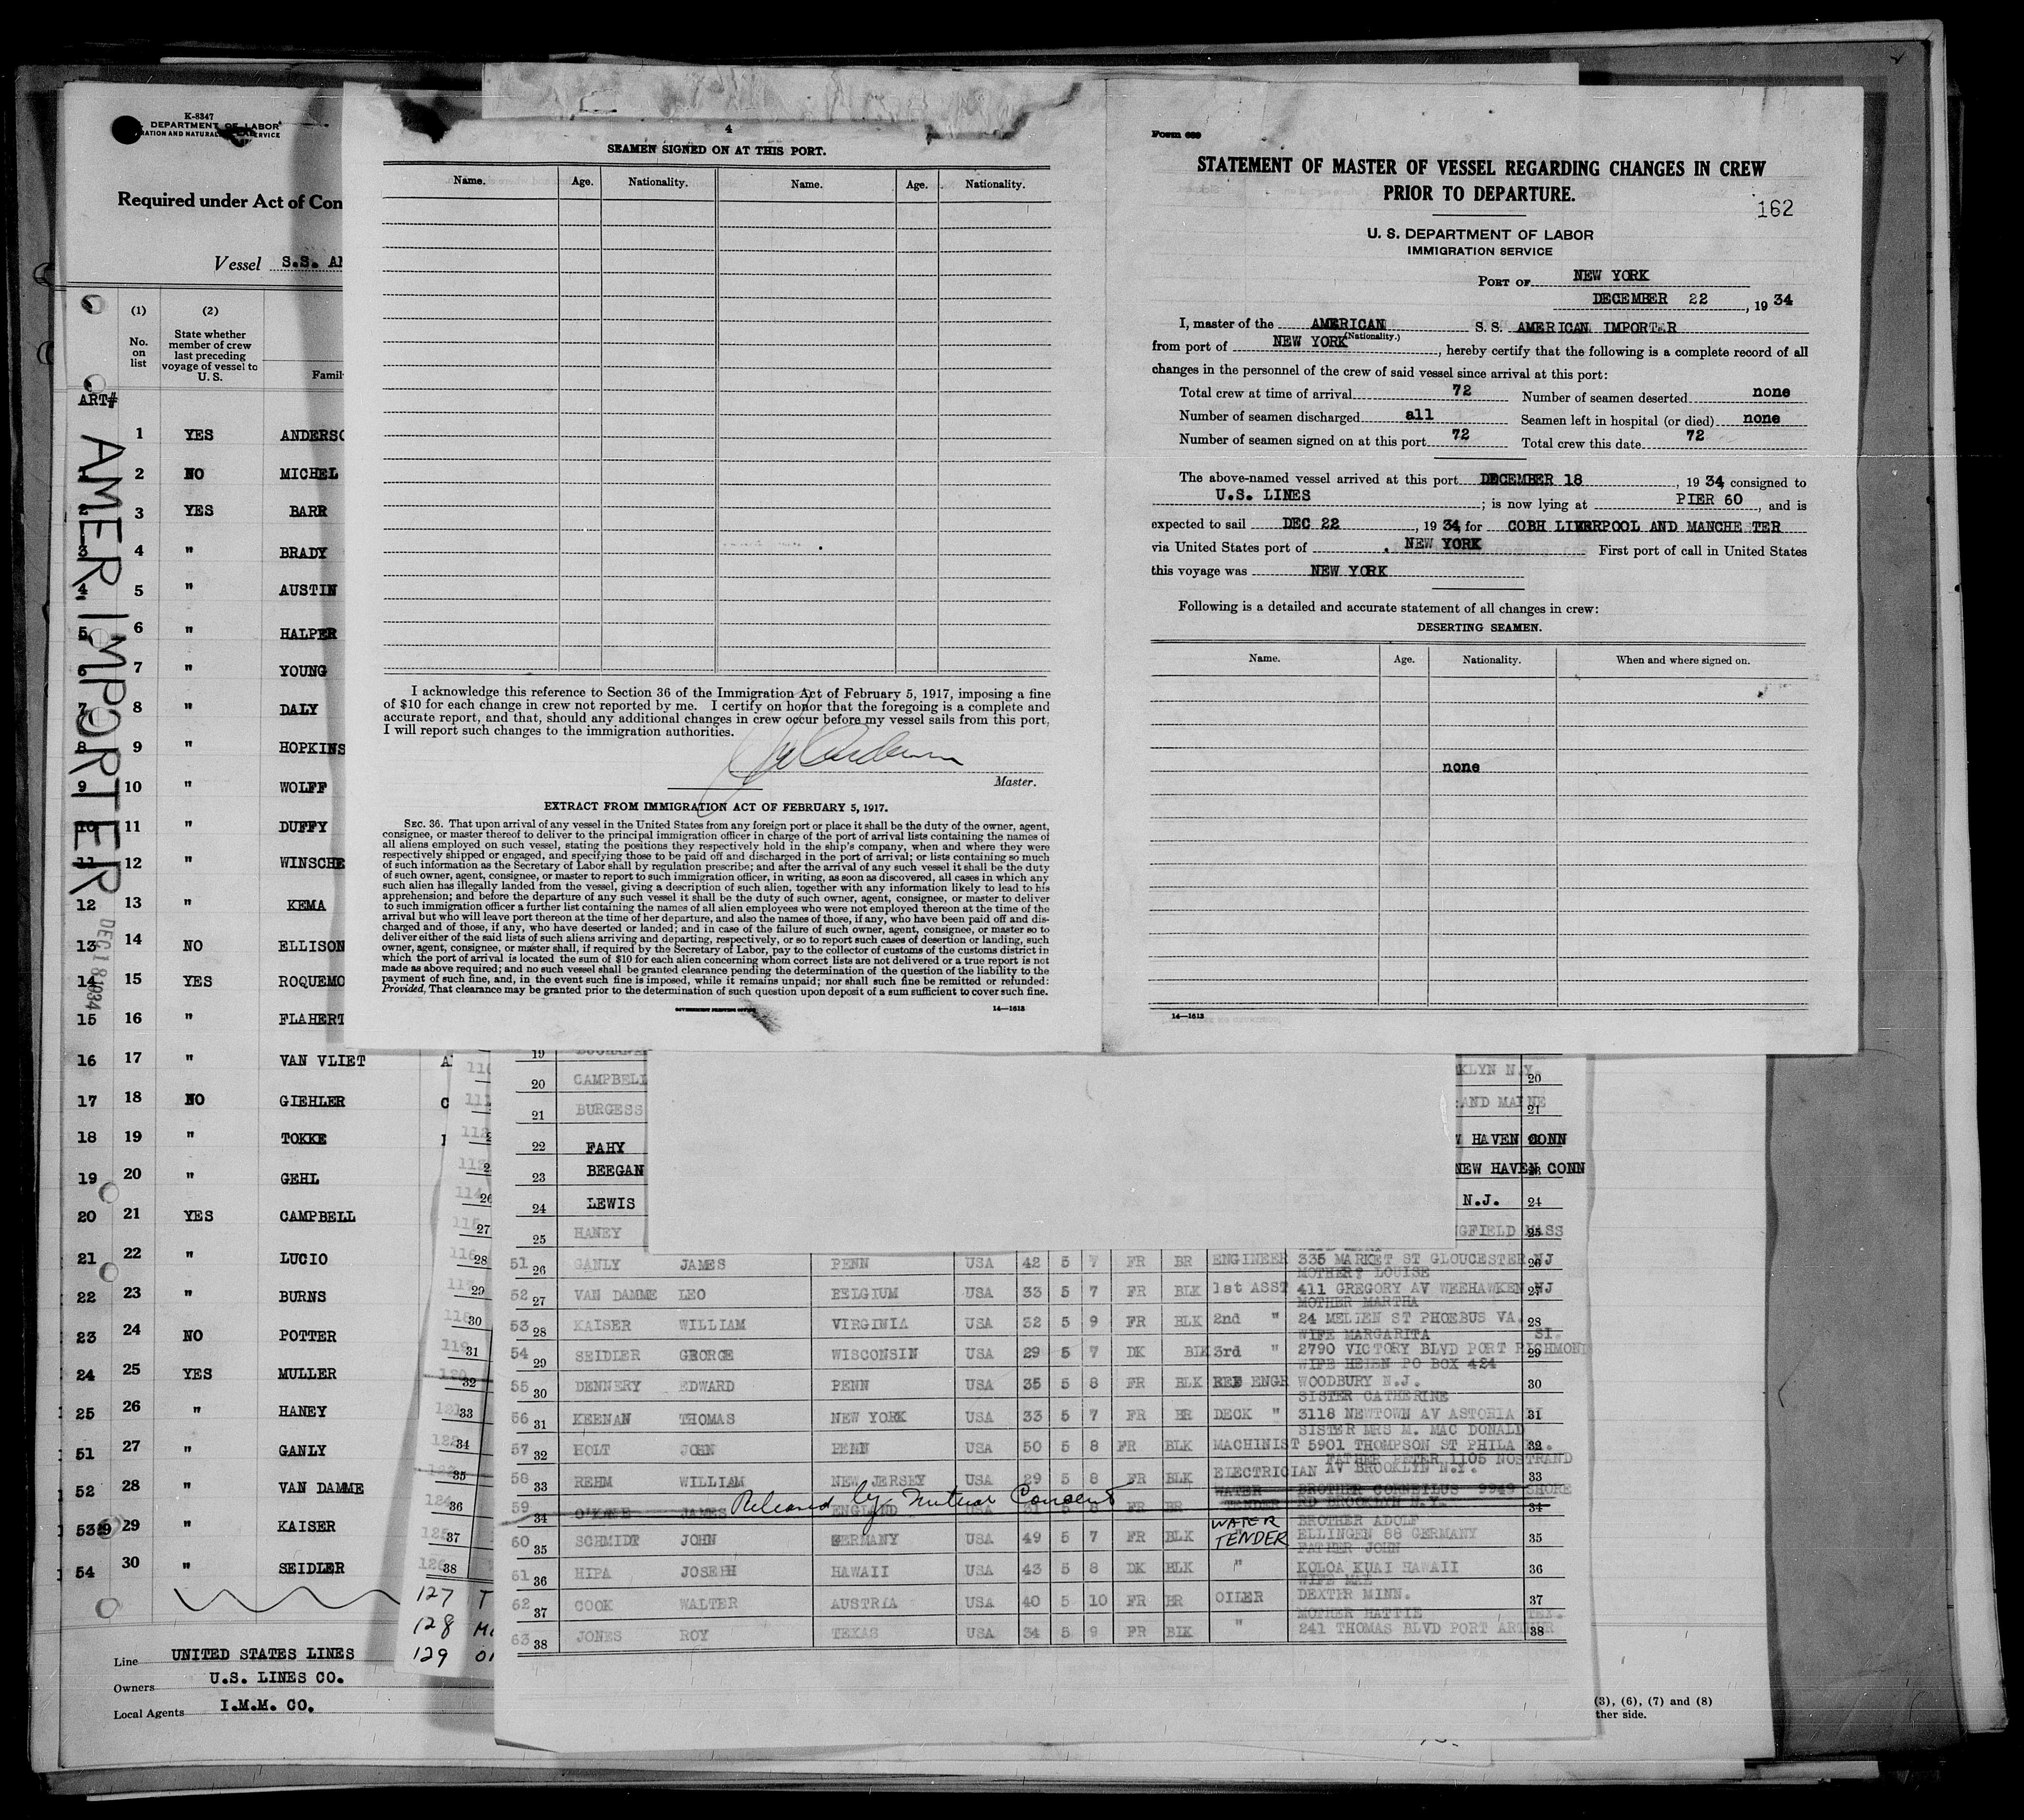 K-8347
DEPARTMENT OF LABOR
Required under Act of Con
Vessel S.S. A
(1) (2)
No. on list
State whether member of crew last preceding voyage of vessel to U. S.
Famil
ART#
AMER. IMPORTER
DEC 18 1934
1 YES ANDERSO
1 2 NO MICHEL
2 3 YES BARR
3 4 " BRADY
4 5 " AUSTIN
5 6 " HALPER
6 7 " YOUNG
7 8 " DALY
8 9 " HOPKINS
9 10 " WOLFF
10 11 " DUFFY
11 12 " WINSCHE
12 13 " KEMA
13 14 NO ELLISON
14 15 YES ROQUEMO
15 16 " FLAHERT
16 17 " VAN VLIET
17 18 NO GIEHLER
18 19 " TOKKE
19 20 " GEHL
20 21 YES CAMPBELL
21 22 " LUCIO
22 23 " BURNS
23 24 NO POTTER
24 25 YES MULLER
25 26 " HANEY
51 27 " GANLY
52 28 " VAN DAMME
53 29 " KAISER
54 30 " SEIDLER
Line UNITED STATES LINES
Owners U.S. LINES CO.
Local Agents I.M.M. CO.
4
SEAMEN SIGNED ON AT THIS PORT.
Name. Age. Nationality. Name. Age. Nationality.
I acknowledge this reference to Section 36 of the Immigration Act of February 5, 1917, imposing a fine
of $10 for each change in crew not reported by me. I certify on honor that the foregoing is a complete and
accurate report, and that, should any additional changes in crew occur before my vessel sails from this port,
I will report such changes to the immigration authorities.
Master.
EXTRACT FROM IMMIGRATION ACT OF FEBRUARY 5, 1917.
SEC. 36. That upon arrival of any vessel in the United States from any foreign port or place it shall be the duty of the owner, agent,
consignee, or master thereof to deliver to the principal immigration officer in charge of the port of arrival lists containing the names of
all aliens employed on such vessel, stating the positions they respectively hold in the ship's company, when and where they were
respectively shipped or engaged, and specifying those to be paid off and discharged in the port of arrival; or lists containing so much
of such information as the Secretary of Labor shall by regulation prescribe; and after the arrival of any such vessel it shall be the duty
of such owner, agent, consignee, or master to report to such immigration officer, in writing, as soon as discovered, all cases in which any
such alien has illegally landed from the vessel, giving a description of such alien, together with any information likely to lead to his
apprehension; and before the departure of any such vessel it shall be the duty of such owner, agent, consignee, or master to deliver
to such immigration officer a further list containing the names of all alien employees who were not employed thereon at the time of the
arrival but who will leave port thereon at the time of her departure, and also the names of those, if any, who have been paid off and dis-
charged and of those, if any, who have deserted or landed; and in case of the failure of such owner, agent, consignee, or master so to
deliver either of the said lists of such aliens arriving and departing, respectively, or so to report such cases of desertion or landing, such
owner, agent, consignee, or master shall, if required by the Secretary of Labor, pay to the collector of customs of the customs district in
which the port of arrival is located the sum of $10 for each alien concerning whom correct lists are not delivered or a true report is not
made as above required; and no such vessel shall be granted clearance pending the determination of the question of the liability to the
payment of such fine, and, in the event such fine is imposed, while it remains unpaid; nor shall such fine be remitted or refunded:
Provided, That clearance may be granted prior to the determination of such question upon deposit of a sum sufficient to cover such fine.
GOVERNMENT PRINTING OFFICE 14—1613
Form 689
STATEMENT OF MASTER OF VESSEL REGARDING CHANGES IN CREW
PRIOR TO DEPARTURE.
162
U. S. DEPARTMENT OF LABOR
IMMIGRATION SERVICE
PORT OF NEW YORK
DECEMBER 22, 1934
I, master of the AMERICAN S.S. AMERICAN IMPORTER
(Nationality.)
from port of NEW YORK, hereby certify that the following is a complete record of all
changes in the personnel of the crew of said vessel since arrival at this port:
Total crew at time of arrival 72 Number of seamen deserted none
Number of seamen discharged all Seamen left in hospital (or died) none
Number of seamen signed on at this port 72 Total crew this date 72
The above-named vessel arrived at this port DECEMBER 18, 1934 consigned to
U.S. LINES; is now lying at PIER 60, and is
expected to sail DEC 22, 1934 for COBH LIVERPOOL AND MANCHE TER
via United States port of NEW YORK First port of call in United States
this voyage was NEW YORK
Following is a detailed and accurate statement of all changes in crew:
DESERTING SEAMEN.
Name. Age. Nationality. When and where signed on.
none
14—1613
19
20 CAMPBELL KLYN N.Y. 20
21 BURGESS AND MAINE 21
22 FAHY HAVEN CONN
23 BEEGAN NEW HAVEN CONN
24 LEWIS N.J. 24
25 HANEY GFIELD MASS 25
51 26 GANLY JAMES PENN USA 42 5 7 FR BR ENGINEER 335 MARKET ST GLOUCESTER NJ 26
MOTHER LOUISE
52 27 VAN DAMME LEO BELGIUM USA 33 5 7 FR BLK 1st ASST 411 GREGORY AV WEEHAWKEN NJ 27
MOTHER MARTHA
53 28 KAISER WILLIAM VIRGINIA USA 32 5 9 FR BLK 2nd " 24 MELLEN ST PHOEBUS VA. 28
WIFE MARGARITA SI.
54 29 SEIDLER GEORGE WISCONSIN USA 29 5 7 DK BLK 3rd " 2790 VICTORY BLVD PORT RICHMOND 29
WIFE HELEN PO BOX 424
55 30 DENNERY EDWARD PENN USA 35 5 8 FR BLK REF ENGR WOODBURY N.J. 30
SISTER CATHERINE
56 31 KEENAN THOMAS NEW YORK USA 33 5 7 FR BR DECK " 3118 NEWTOWN AV ASTORIA 31
SISTER MRS M. MAC DONALD
57 32 HOLT JOHN PENN USA 50 5 8 FR BLK MACHINIST 5901 THOMPSON ST PHILA 32
FATHER PETER 1105 NOSTRAND
58 33 REHM WILLIAM NEW JERSEY USA 29 5 8 FR BLK ELECTRICIAN AV BROOKLYN N.Y. 33
WATER BROTHER CORNELIUS 9949 SHORE
59 34 JAMES Released by Mutual Consent ENGLAND USA FR BR TENDER RD BROOKLYN N.Y. 34
WATER BROTHER ADOLF
60 35 SCHMIDT JOHN GERMANY USA 49 5 7 FR BLK TENDER ELLINGEN 88 GERMANY 35
FATHER JOHN
61 36 HIPA JOSEPH HAWAII USA 43 5 8 DK BLK " KOLOA KUAI HAWAII 36
WIFE MAE
62 37 COOK WALTER AUSTRIA USA 40 5 10 FR BR OILER DEXTER MINN. 37
MOTHER HATTIE TEX.
63 38 JONES ROY TEXAS USA 34 5 9 FR BLK " 241 THOMAS BLVD PORT ARTHUR 38
127 T
128 M
129 O
(3), (6), (7) and (8)
ther side.